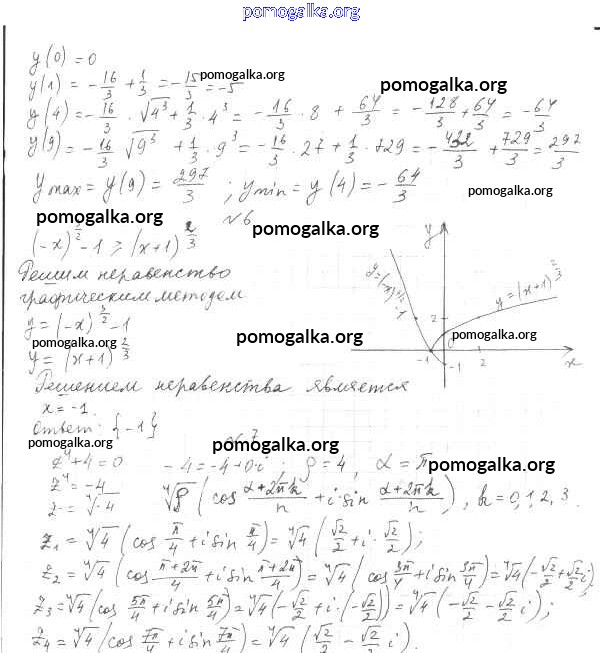 pomogalka.org
y(0) = 0
y(1) = -16/3 + 1/3 = -15/3 = -5
pomogalka.org
pomogalka.org
y(4) = -16/3 · √4³ + 1/3 · 4³ = -16/3 · 8 + 64/3 = -128/3 + 64/3 = -64/3
y(9) = -16/3 √9³ + 1/3 · 9³ = -16/3 · 27 + 1/3 · 729 = -432/3 + 729/3 = 297/3
y max = y(9) = 297/3 ; y min = y(4) = -64/3
pomogalka.org
pomogalka.org
№6
pomogalka.org
(-x)^2/2 - 1 ≥ (x+1)^2/3
Решим неравенство
графическим методом
y = (-x)^3/2 - 1
y = (x+1)^2/3
pomogalka.org
pomogalka.org
pomogalka.org
y
y = (-x)^3/2 - 1
y = (x+1)^2/3
2
-1
-1
2
x
Решением неравенства является
x = -1.
Ответ: {-1}
pomogalka.org
pomogalka.org
pomogalka.org
№7
z⁴ + 4 = 0 -4 = -4 + 0i ; ρ = 4, α = π
z⁴ = -4
z = ⁴√-4 ⁴√ρ (cos (α+2πk)/n + i sin (α+2πk)/n), k = 0, 1, 2, 3.
z₁ = ⁴√4 (cos π/4 + i sin π/4) = ⁴√4 (√2/2 + i · √2/2);
z₂ = ⁴√4 (cos (π+2π)/4 + i sin (π+2π)/4) = ⁴√4 (cos 3π/4 + i sin 3π/4) = ⁴√4 (-√2/2 + √2/2 i)
z₃ = ⁴√4 (cos 5π/4 + i sin 5π/4) = ⁴√4 (-√2/2 + i · (-√2/2)) = ⁴√4 (-√2/2 - √2/2 i);
z₄ = ⁴√4 (cos 7π/4 + i sin 7π/4) = ⁴√4 (√2/2 - √2/2 i).